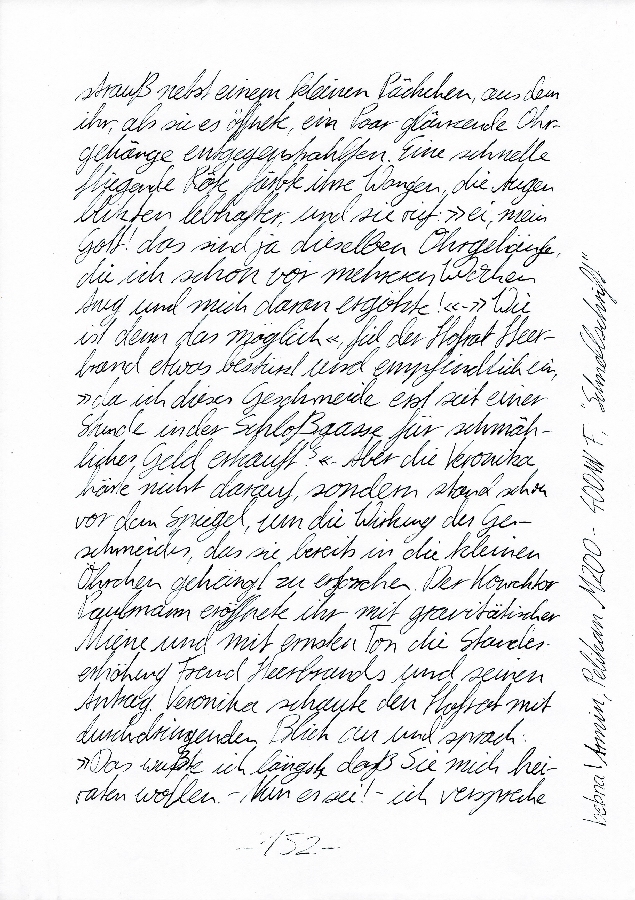 strauß nebst einem kleinen Päckchen, aus dem
ihr, als sie es öffnete, ein Paar glänzende Ohr-
gehänge entgegenstrahlten. Eine schnelle
fliegende Röte färbte ihre Wangen, die Augen
blitzten lebhafter, und sie rief: »ei, mein
Gott! das sind ja dieselben Ohrgehänge,
die ich schon vor mehreren Wochen
trug und mich daran ergötzte!«-»Wie
ist denn das möglich«, fiel der Hofrat Heer-
brand etwas bestürzt und empfindlich ein,
»da ich dieses Geschmeide erst seit einer
Stunde in der Schloßgasse für schmäh-
liches Geld erkauft?«- Aber die Veronika
hörte nicht darauf, sondern stand schon
vor dem Spiegel, um die Wirkung des Ge-
schmeides, das sie bereits in die kleinen
Öhrchen gehängt zu erforschen. Der Konrektor
Paulmann eröffnete ihr mit gravitätischer
Miene und mit ernstem Ton die Standes-
erhöhung Freund Heerbrands und seinen
Antrag. Veronika schaute den Hofrat mit
durchdringendem Blick an und sprach:
»Das wußte ich längst, daß Sie mich hei-
raten wollen.- Nun es sei!- ich verspreche
-152-
Armin, Pelikan M200 - 4001 F, "Schmallschrift"